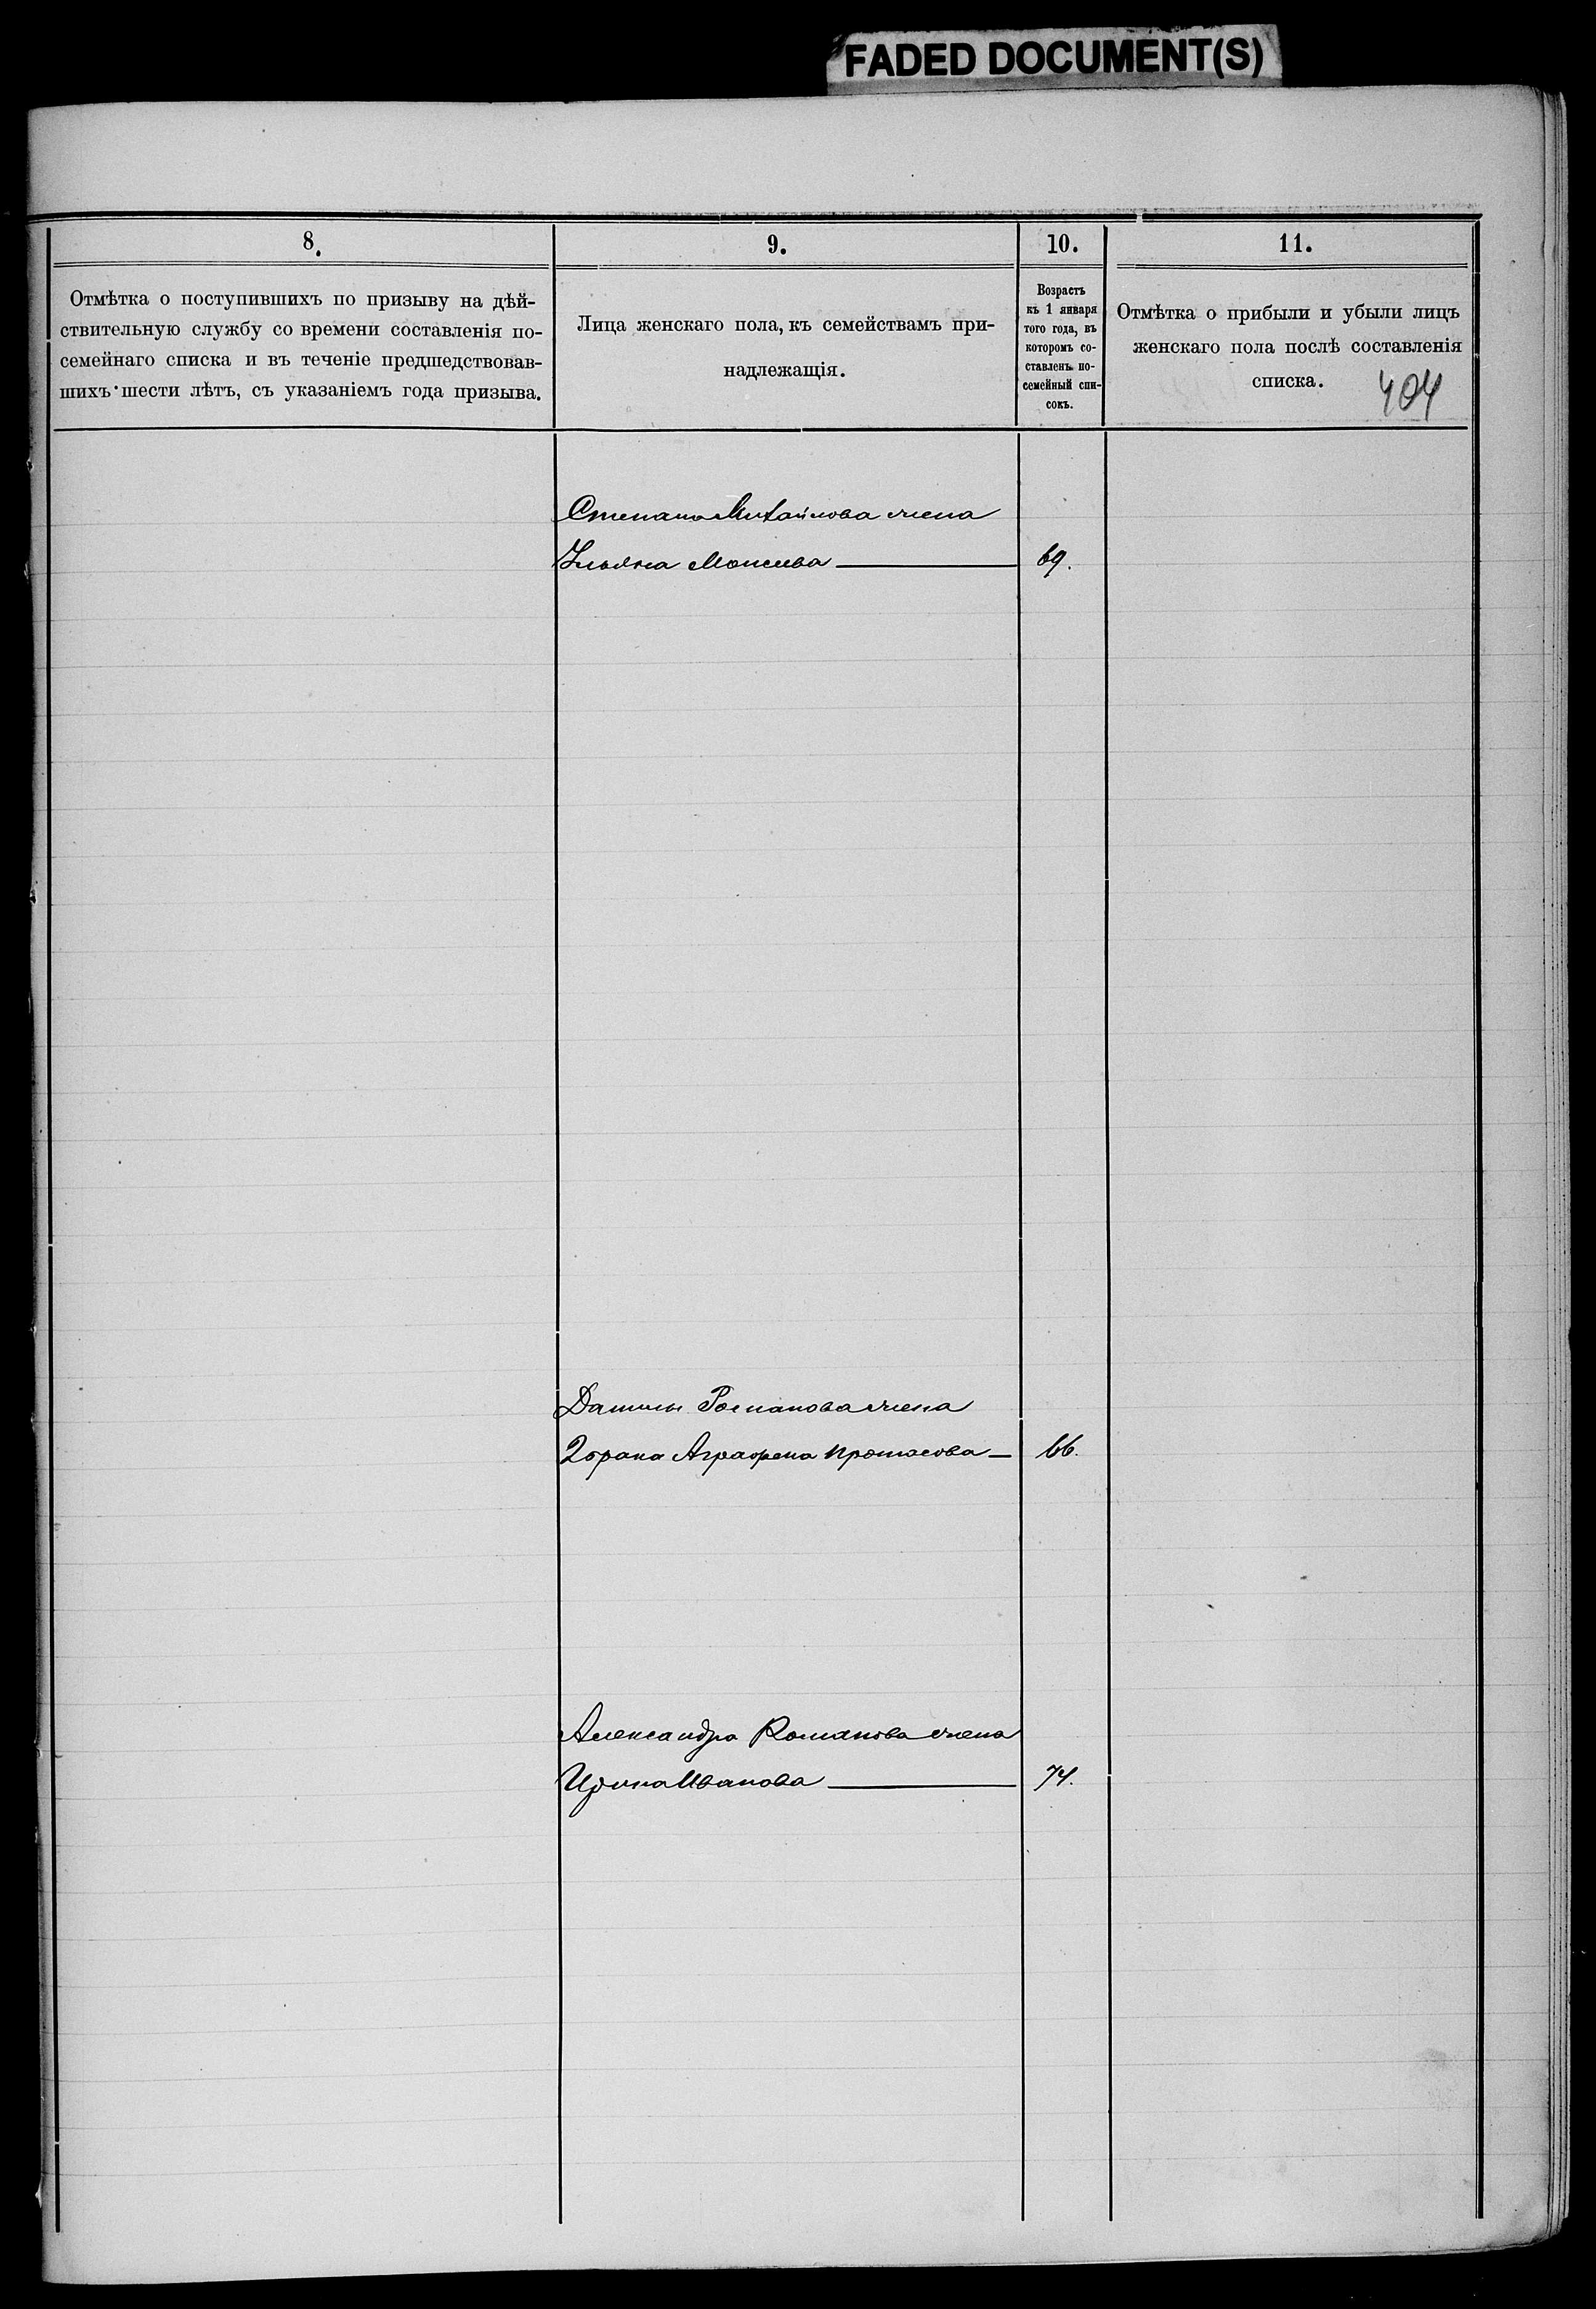 FADED DOCUMENT(S)
8.
9.
10.
11.
Отмѣтка о поступившихъ по призыву на дѣй-
ствительную службу со времени составленія по-
семейнаго списка и въ теченіе предшедствовав-
шихъ шести лѣтъ, съ указаніемъ года призыва.
Лица женскаго пола, къ семействамъ при-
надлежащія.
Возрастъ
къ 1 января
того года, въ
которомъ со-
ставленъ по-
семейный спи-
сокъ.
Отмѣтка о прибыли и убыли лицъ
женскаго пола послѣ составленія
списка.
404
Степана Михайлова жена
Ульяна Моисеева 69.
Данилы Романова жена
2 брака Аграфена Протасова 66.
Александра Романова жена
Ирина Иванова 74.